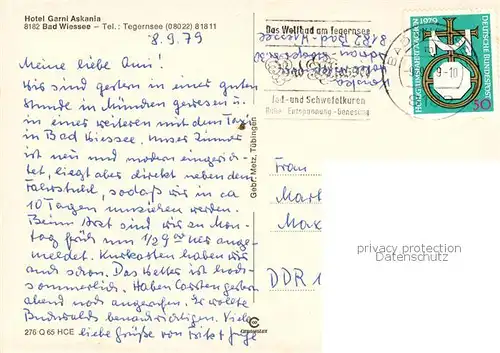 Hotel Garni Askania
8182 Bad Wiessee – Tel.: Tegernsee (08022) 81811
8.9.79
Meine liebe Omi!
Wir sind gestern in einer guten
Stunde in München gewesen u.
in einer weiteren mit dem Taxi
in Bad Wiessee. Unser Zimmer
ist neu und modern eingerich-
tet, liegt aber direkt neben dem
Fahrstuhl, sodaß wir in ca
10 Tagen umziehen werden.
Beim Arzt sind wir zu Mon-
tag früh um 1/2 9 00 her ange-
meldet. Kurkarten haben wir
auch schon. Das Wetter ist hoch-
sommerlich. Haben Carsten gestern
abend noch angerufen. Er wollte
Buchwalds benachrichtigen. Viele
liebe Grüße von
276 Q 65 HCE
Gebr. Metz, Tübingen
Das Weltbad am Tegernsee
8182 Bad Wiessee
Jod- und Schwefelkuren
Ruhe - Entspannung - Genesung
9-10
1979
DEUTSCHE BUNDESPOST
HOLZGITTERFAHRT AACHEN
50
Frau
Mart
Max
DDR 1
privacy protection
powered by Veikkos